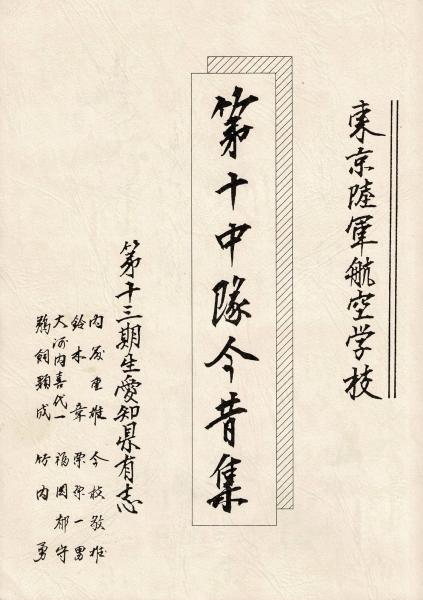 東京陸軍航空学校
第十中隊今昔集
第十三期生愛知県有志
内茂重雄 今枝敬雄
鈴木章 栗栗一男
大河内喜代一 福岡郁守
鵜飼頼成 竹内勇